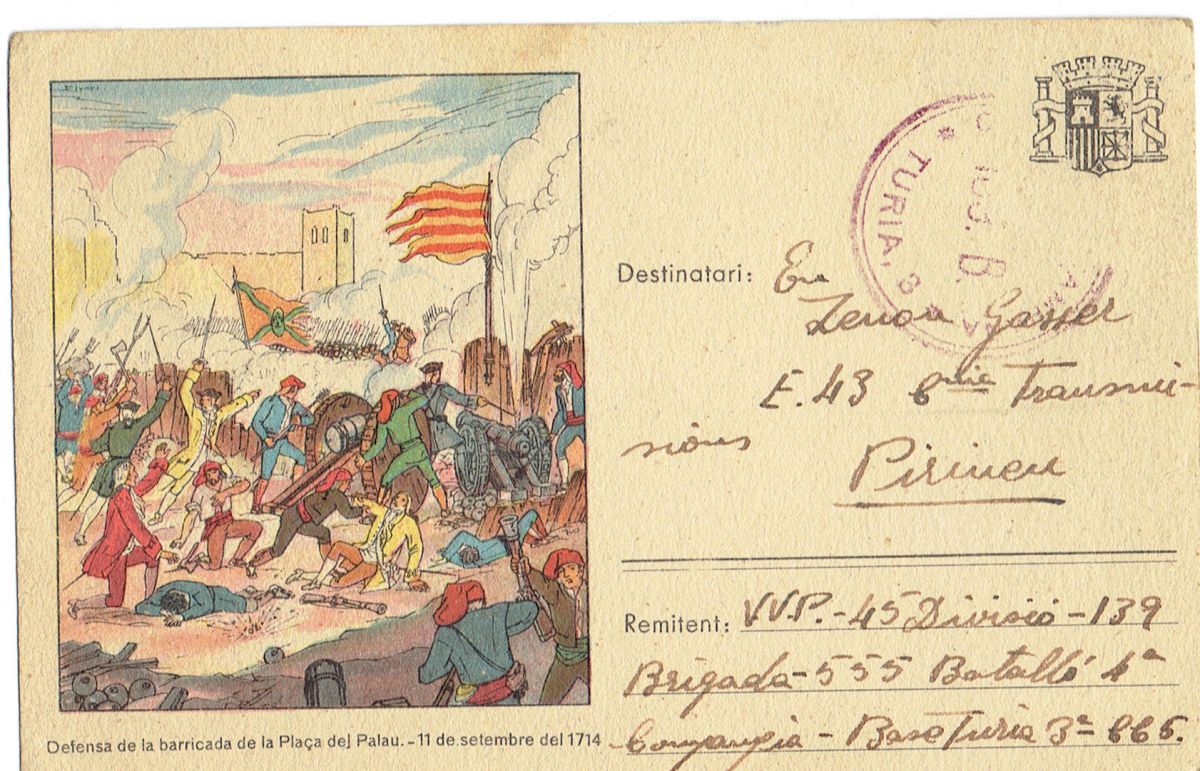 Defensa de la barricada de la Plaça del Palau.-11 de setembre del 1714
TURIA, 3
Destinatari: En
Zenon Gasser
E.43 6 Transmi-
sions
Pirineu
Remitent: V.V.P.-45 Divisió-139
Brigada-555 Batalló 4ª
Companyia - Base Turia 3ª